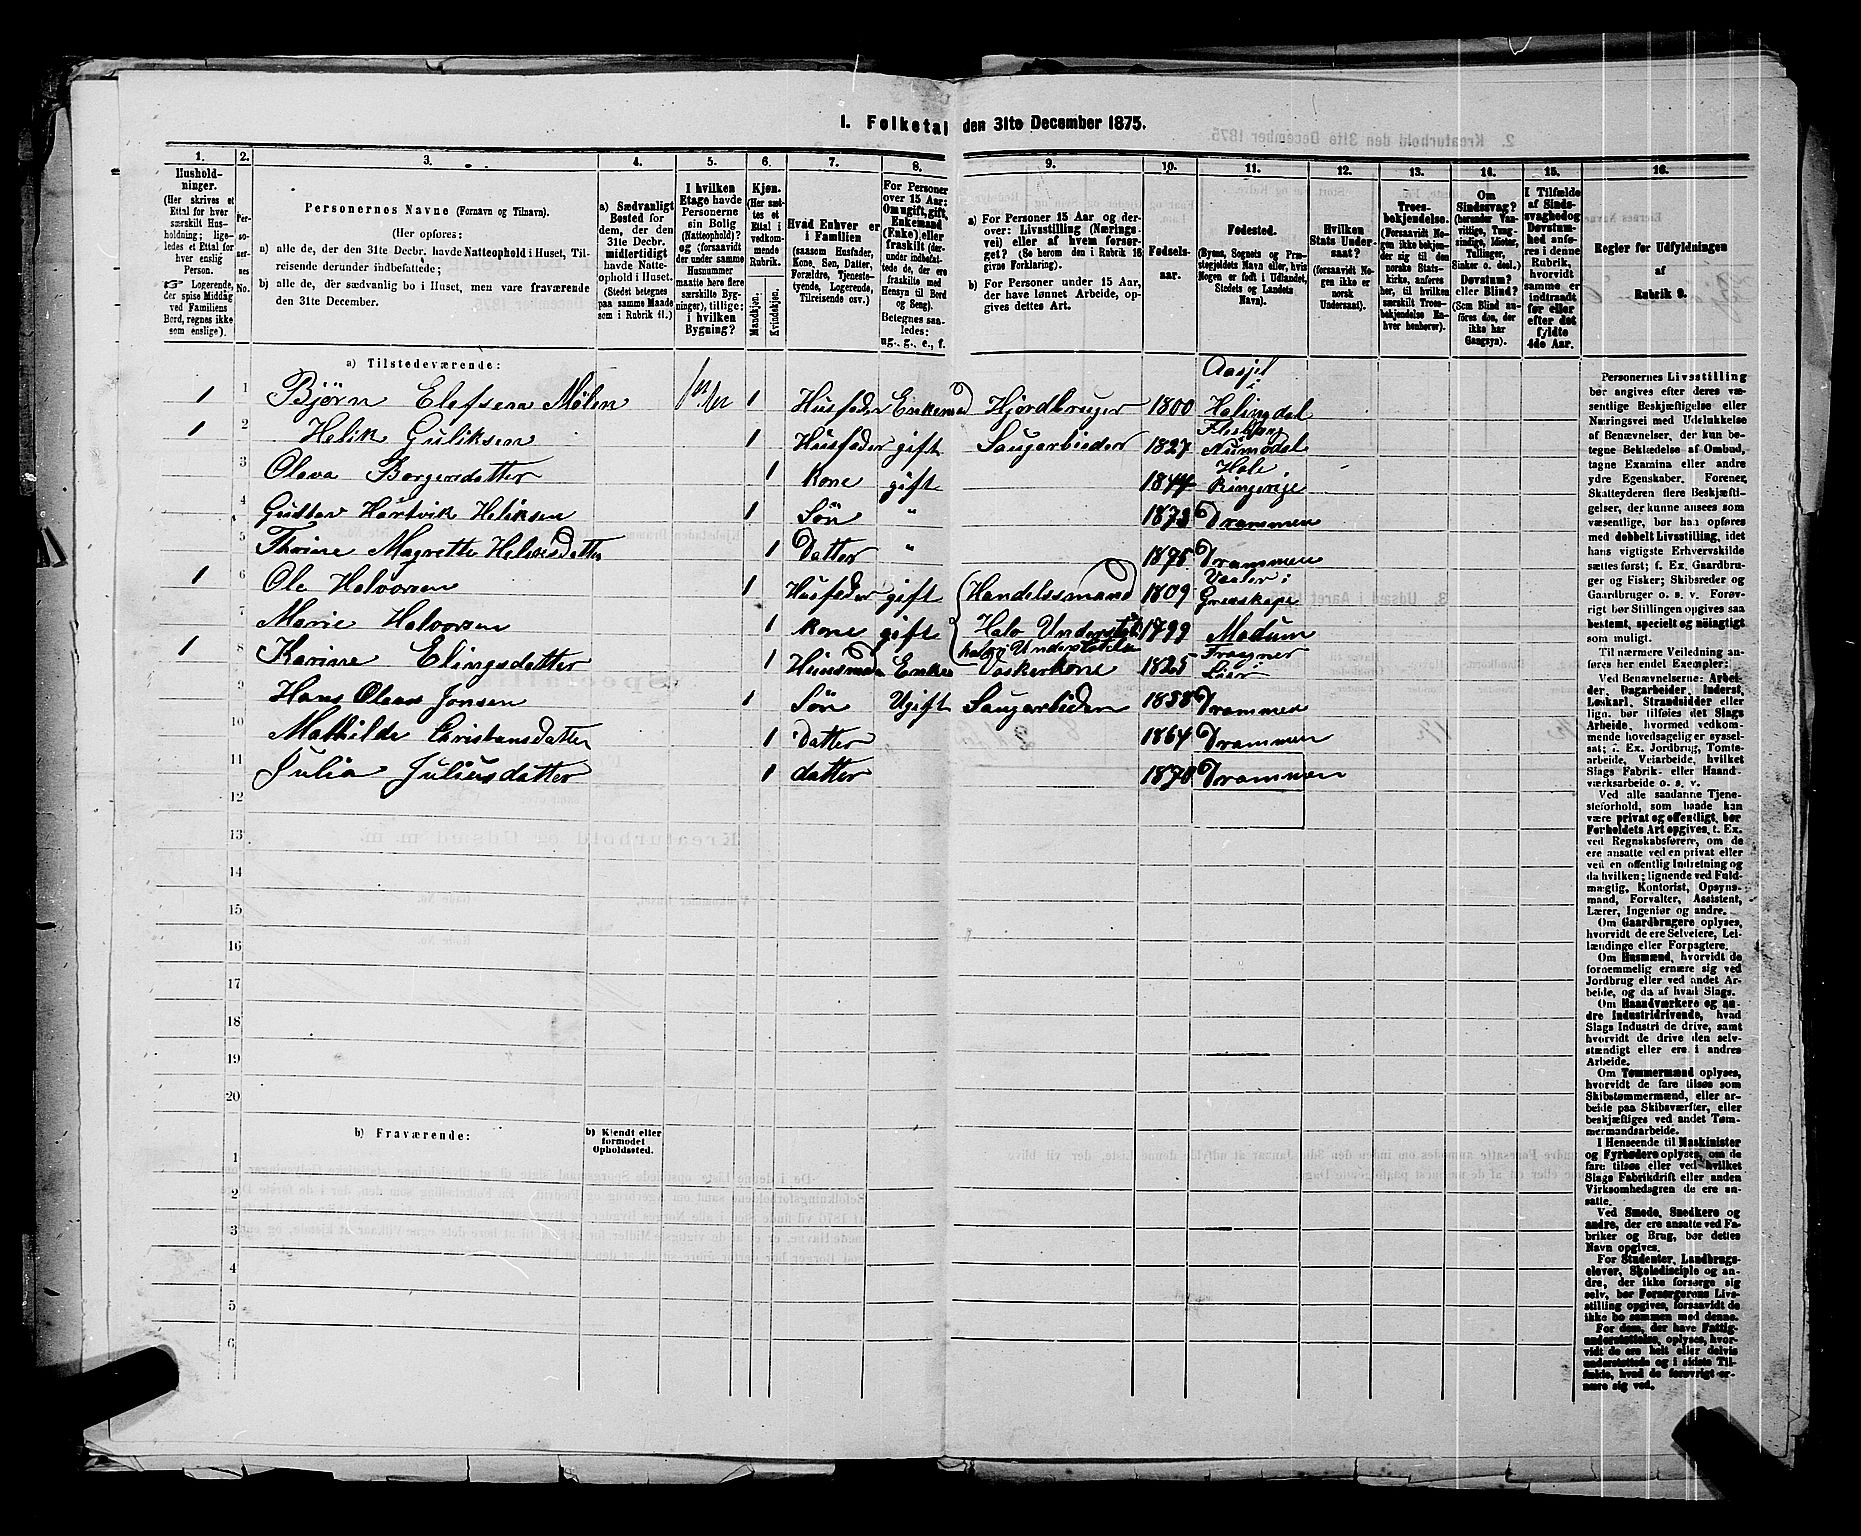 I. Folketal den 31te December 1875.
1. 2. 3. 4. 5. 6. 7. 8. 9. 10. 11. 12. 13. 14. 15. 16.
Husholdninger.
(Her skrives et
Ettal for hver
særskilt Husholdning; ligeledes et Ettal for
hver enslig
Person.
☞ Logerende,
der spise Middag
ved Familiens
Bord, regnes ikke
som enslige).
Personernes No.
Personernes Navne (Fornavn og Tilnavn).
(Her opføres:
a) alle de, der den 31te Decbr. havde Natteophold i Huset, Tilreisende derunder indbefattede;
b) alle de, der sædvanlig bo i Huset, men vare fraværende
den 31te December.
a) Sædvanligt
Bosted for
dem, der den
31te Decbr.
midlertidigt
havde Natteophold i Huset.
(Stedet betegnes
paa samme Maade
som i Rubrik 11.)
I hvilken
Etage havde
Personerne
sin Bolig
(Natteophold)?
og (forsaavidt
der under samme
Husnummer
maatte høre flere
særskilte Bygninger), tillige:
i hvilken
Bygning?
Kjøn.
(Her sættes et
Ettal i
vedkommende
Rubrik.
Mandkjøn.
Kvindekjøn.
Hvad Enhver er
i Familien
(saasom Husfader,
Kone, Søn, Datter,
Forældre, Tjenestetyende, Logerende,
Tilreisende osv.)
For Personer
over 15 Aar:
Om ugift, gift,
Enkemand
(Enke) eller
fraskilt (derunder indbefattede de, der ere
fraskilte med
Hensyn til Bord
og Seng).
Betegnes saaledes:
ug., g., e., f.
a) For Personer 15 Aar og derover: Livsstilling (Næringsvei) eller af hvem forsørget? (Se herom den i Rubrik 16
givne Forklaring).
b) For Personer under 15 Aar,
der have lønnet Arbeide, opgives dettes Art.
Fødselsaar.
Fødested.
(Byens, Sognets og Præstegjeldets Navn eller, hvis
Nogen er født i Udlandet,
Stedets og Landets
Navn).
Hvilken
Stats Undersaat?
(forsaavidt Nogen ikke er
norsk
Undersaat).
Troesbekjendelse.
(Forsaavidt Nogen ikke bekjender sig til den
norske Statskirke, anføres
her, til hvilken
særskilt Troesbekjendelse Enhver henhører).
Om
Sindssvag?
(herunder Vanvittige, Tungsindige, Idioter,
Tullinger,
Sinker o. desl.)
Døvstum?
eller Blind?
(Som Blind anføres den, der
ikke har
Gangsyn).
I Tilfælde
af Sindssvaghed og
Døvstumhed anføres i denne
Rubrik,
hvorvidt
samme er
indtraadt
før eller
efter det
fyldte
4de Aar.
Regler for Udfyldningen
af
Rubrik 9.
a) Tilstedeværende:
1 1 Bjørn Elefsen Mølen 1 Husfader Enkemd Hjordbruger 1800 Halingdal
1 2 Helik Guliksen 1 Husfader gift Saugarbieder 1827 Flesberg Numedal
3 Olava Borgersdatter 1 Kone gift 1844 Hole Ringerige
4 Gustav Hartvik Heliksen 1 Søn " 1873 Drammen
5 Thrine Magrette Heliksdatter 1 Datter " 1875 Drammen
1 6 Ole Halvorsen 1 Husfader gift Handelssmand 1809
7 Marie Halvorsen 1 Kone gift 1799 Modum
1 8 Karine Elingsdatter 1 Enke Vaskerkone 1825 Fragner Lier
9 Hans Olaus Jonsen 1 Søn Ugift Saugarbieder 1858 Drammen
10 Mathilde Christansdatter 1 Datter 1864 Drammen
11 Julia Juliusdatter 1 datter 1870 Drammen
12
13
14
15
16
17
18
19
20
b) Fraværende:
b) Kjendt eller
formodet
Opholdssted.
1
2
3
4
5
6
Personernes Livsstilling
bør angives efter deres væsentlige Beskjæftigelse eller
Næringsvei med Udelukkelse
af Benævnelser, der kun betegne Beklædelse af Ombud,
tagne Examina eller andre
ydre Egenskaber. Forener
Skatteyderen flere Beskjæftigelser, der kunne ansees som
væsentlige, bør han opføres
med dobbelt Livsstilling, idet
hans vigtigste Erhvervskilde
sættes først; f. Ex. Gaardbruger og Fisker; Skibsreder og
Gaardbruger o. s. v. Forøvrigt bør Stillingen opgives saa
bestemt, specielt og nøiagtigt
som muligt.
Til nærmere Veiledning anføres her endel Exempler:
Ved Benævnelserne: Arbeider, Dagarbeider, Inderst,
Løskarl, Strandsidder eller
lign. bør tilføies det Slags
Arbeide, hvormed vedkommende hovedsagelig er sysselsat; f. Ex. Jordbrug, Tomtearbeide, Veiarbeide, hvilket
Slags Fabrik- eller Haandværksarbeide o. s. v.
Ved alle saadanne Tjenesteforhold, som baade kan
være privat og offentligt, bør
Forholdets Art opgives, t. Ex.
ved Regnskabsførere, om de
ere ansatte ved en privat eller
ved en offentlig Indretning og
da hvilken; lignende ved Fuldmægtig, Kontorist, Opsynsmand, Forvalter, Assistent,
Lærer, Ingeniør og andre.
Om Gaardbrugere oplyses,
hvorvidt de ere Selveiere, Leilændinge eller Forpagtere.
Om Husmænd, hvorvidt de
fornemmelig ernære sig ved
Jordbrug eller ved andet Arbeide, og da af hvad Slags.
Om Haandværkere og andre Industridrivende, hvad
Slags Industri de drive, samt
hvorvidt de drive den selvstændigt eller ere i andres
Arbeide.
Om Tømmermænd oplyses,
hvorvidt de fare tilsøs som
Skibstømmermænd, eller arbeide paa Skibsværfter, eller
beskjæftiges ved andet Tømmermandsarbeide.
I Henseende til Maskinister
og Fyrbødere oplyses, om de
fare tilsøs eller ved hvilket
Slags Fabrikdrift eller anden
Virksomhedsgren de ere ansatte.
Ved Smede, Snedkere og
andre, der ere ansatte ved Fabriker og Brug, bør dettes
Navn opgives.
For Studenter, Landbrugselever, Skoledisciple og andre, der ikke forsørge sig
selv, bør Forsørgerens Livsstilling opgives, forsaavidt de
ikke bo sammen med denne.
For dem, der have Fattigunderstøttelse, oplyses, hvorvidt de ere helt eller delvis
understøttede og i sidste Tilfælde, hvad de forøvrigt ernære sig ved.